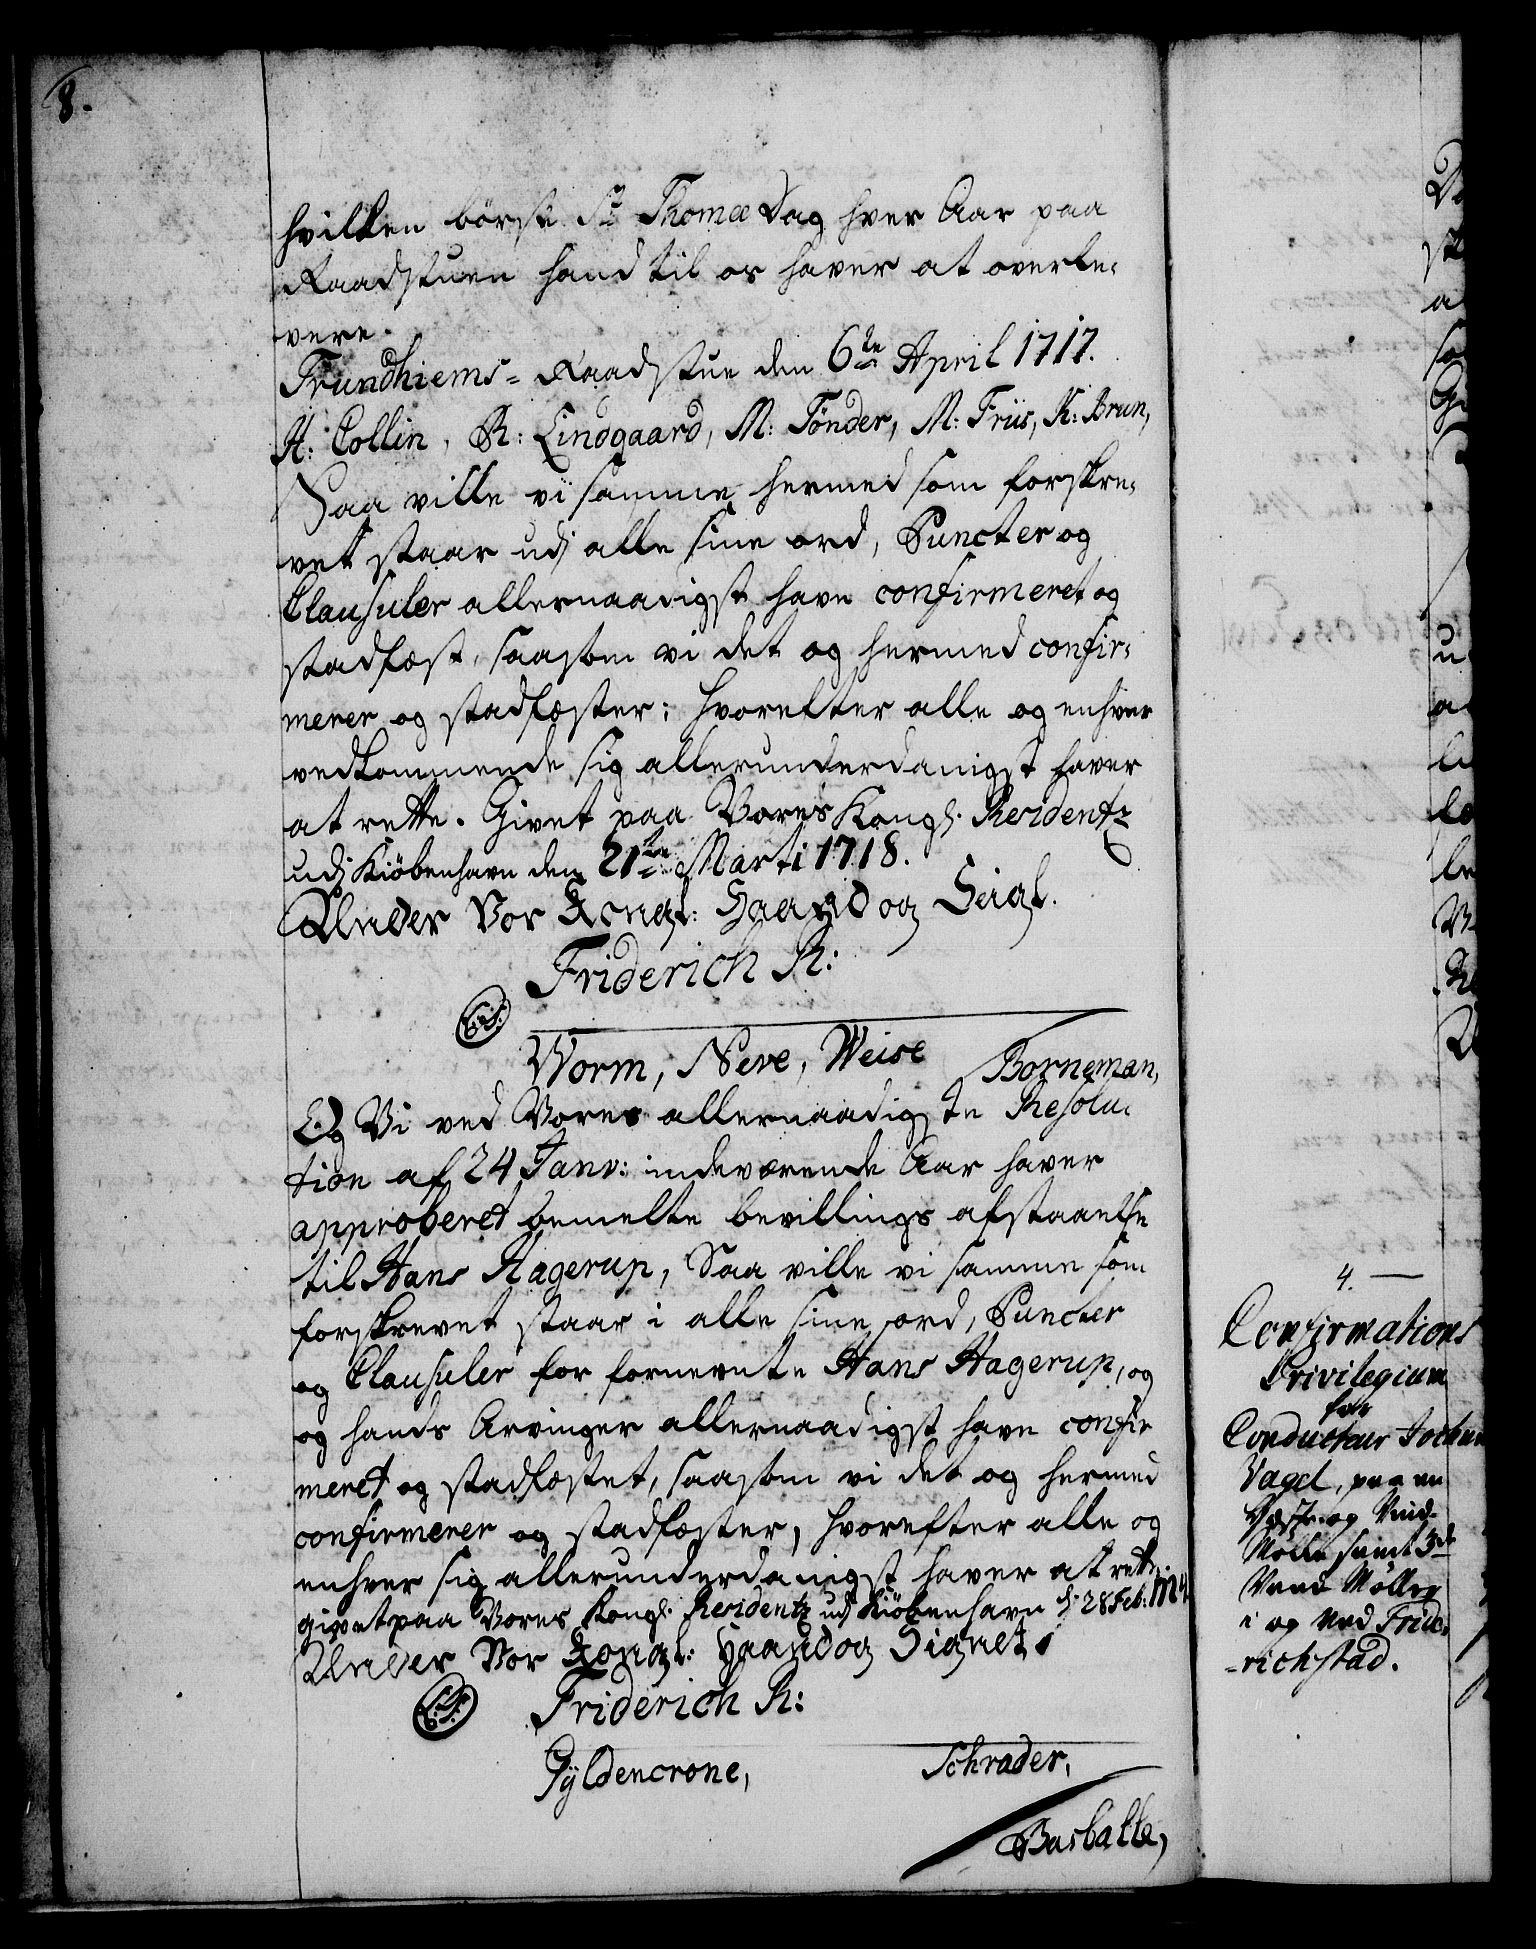 8.
hvilken bör ske St Thomæ Dag hver Aar paa
Raadstuen hand til os haver at overle-
vere.
Trundhiems-Raadstue den 6te April 1717.
H: Collin, R: Lindgaard, M: Tönder, M: Friis, K: Brun,
Saa ville vi samme hermed som forskre-
vet staar udj alle sine ord, Puncter og
Clausuler allernaadigst have confirmeret og
stadfæst, saasom vi det og hermed confir-
merer og stadfæster; hvorefter alle og enhver
vedkommende sig allerunderdanigst haver
at rette. Givet paa Vores Kongl. Residentz
udj Kiöbenhavn den 21te Marti 1718.
Under Vor Kongl: Haand og Seigl.
Friderich R:
L.S.
Worm, Neve, Weise
Borneman,
Og Vi ved Vores allernaadigste Resolu-
tion af 24 Janv: indeværende Aar haver
approberet bemelte bevillings afstaaelse
til Hans Hagerup, Saa ville vi samme som
forskrevet staar i alle sine ord, Puncter
og Clausuler for fornevnte Hans Hagerup, og
og hands Arvinger allernaadigst have confir
meret og stadfæstet, saasom vi det og hermed
confirmerer og stadfæster, hvorefter alle og
enhver sig allerunderdanigst haver at rette,
givet paa Vores Kongl. Residentz udj Kiöbenhavn d. 28 Feb:
Under Vor Kongl: Haand og Signet.
L.S.
Friderich R:
Gyldencrone,
Schrader,
Basballe,
4.
Confirmations
Privilegium
for
Conducteur Jochum
Vagel, paa en
og Vind-
Mölle samt 3de
Vand Möller
i og ved Fride-
-richstad.